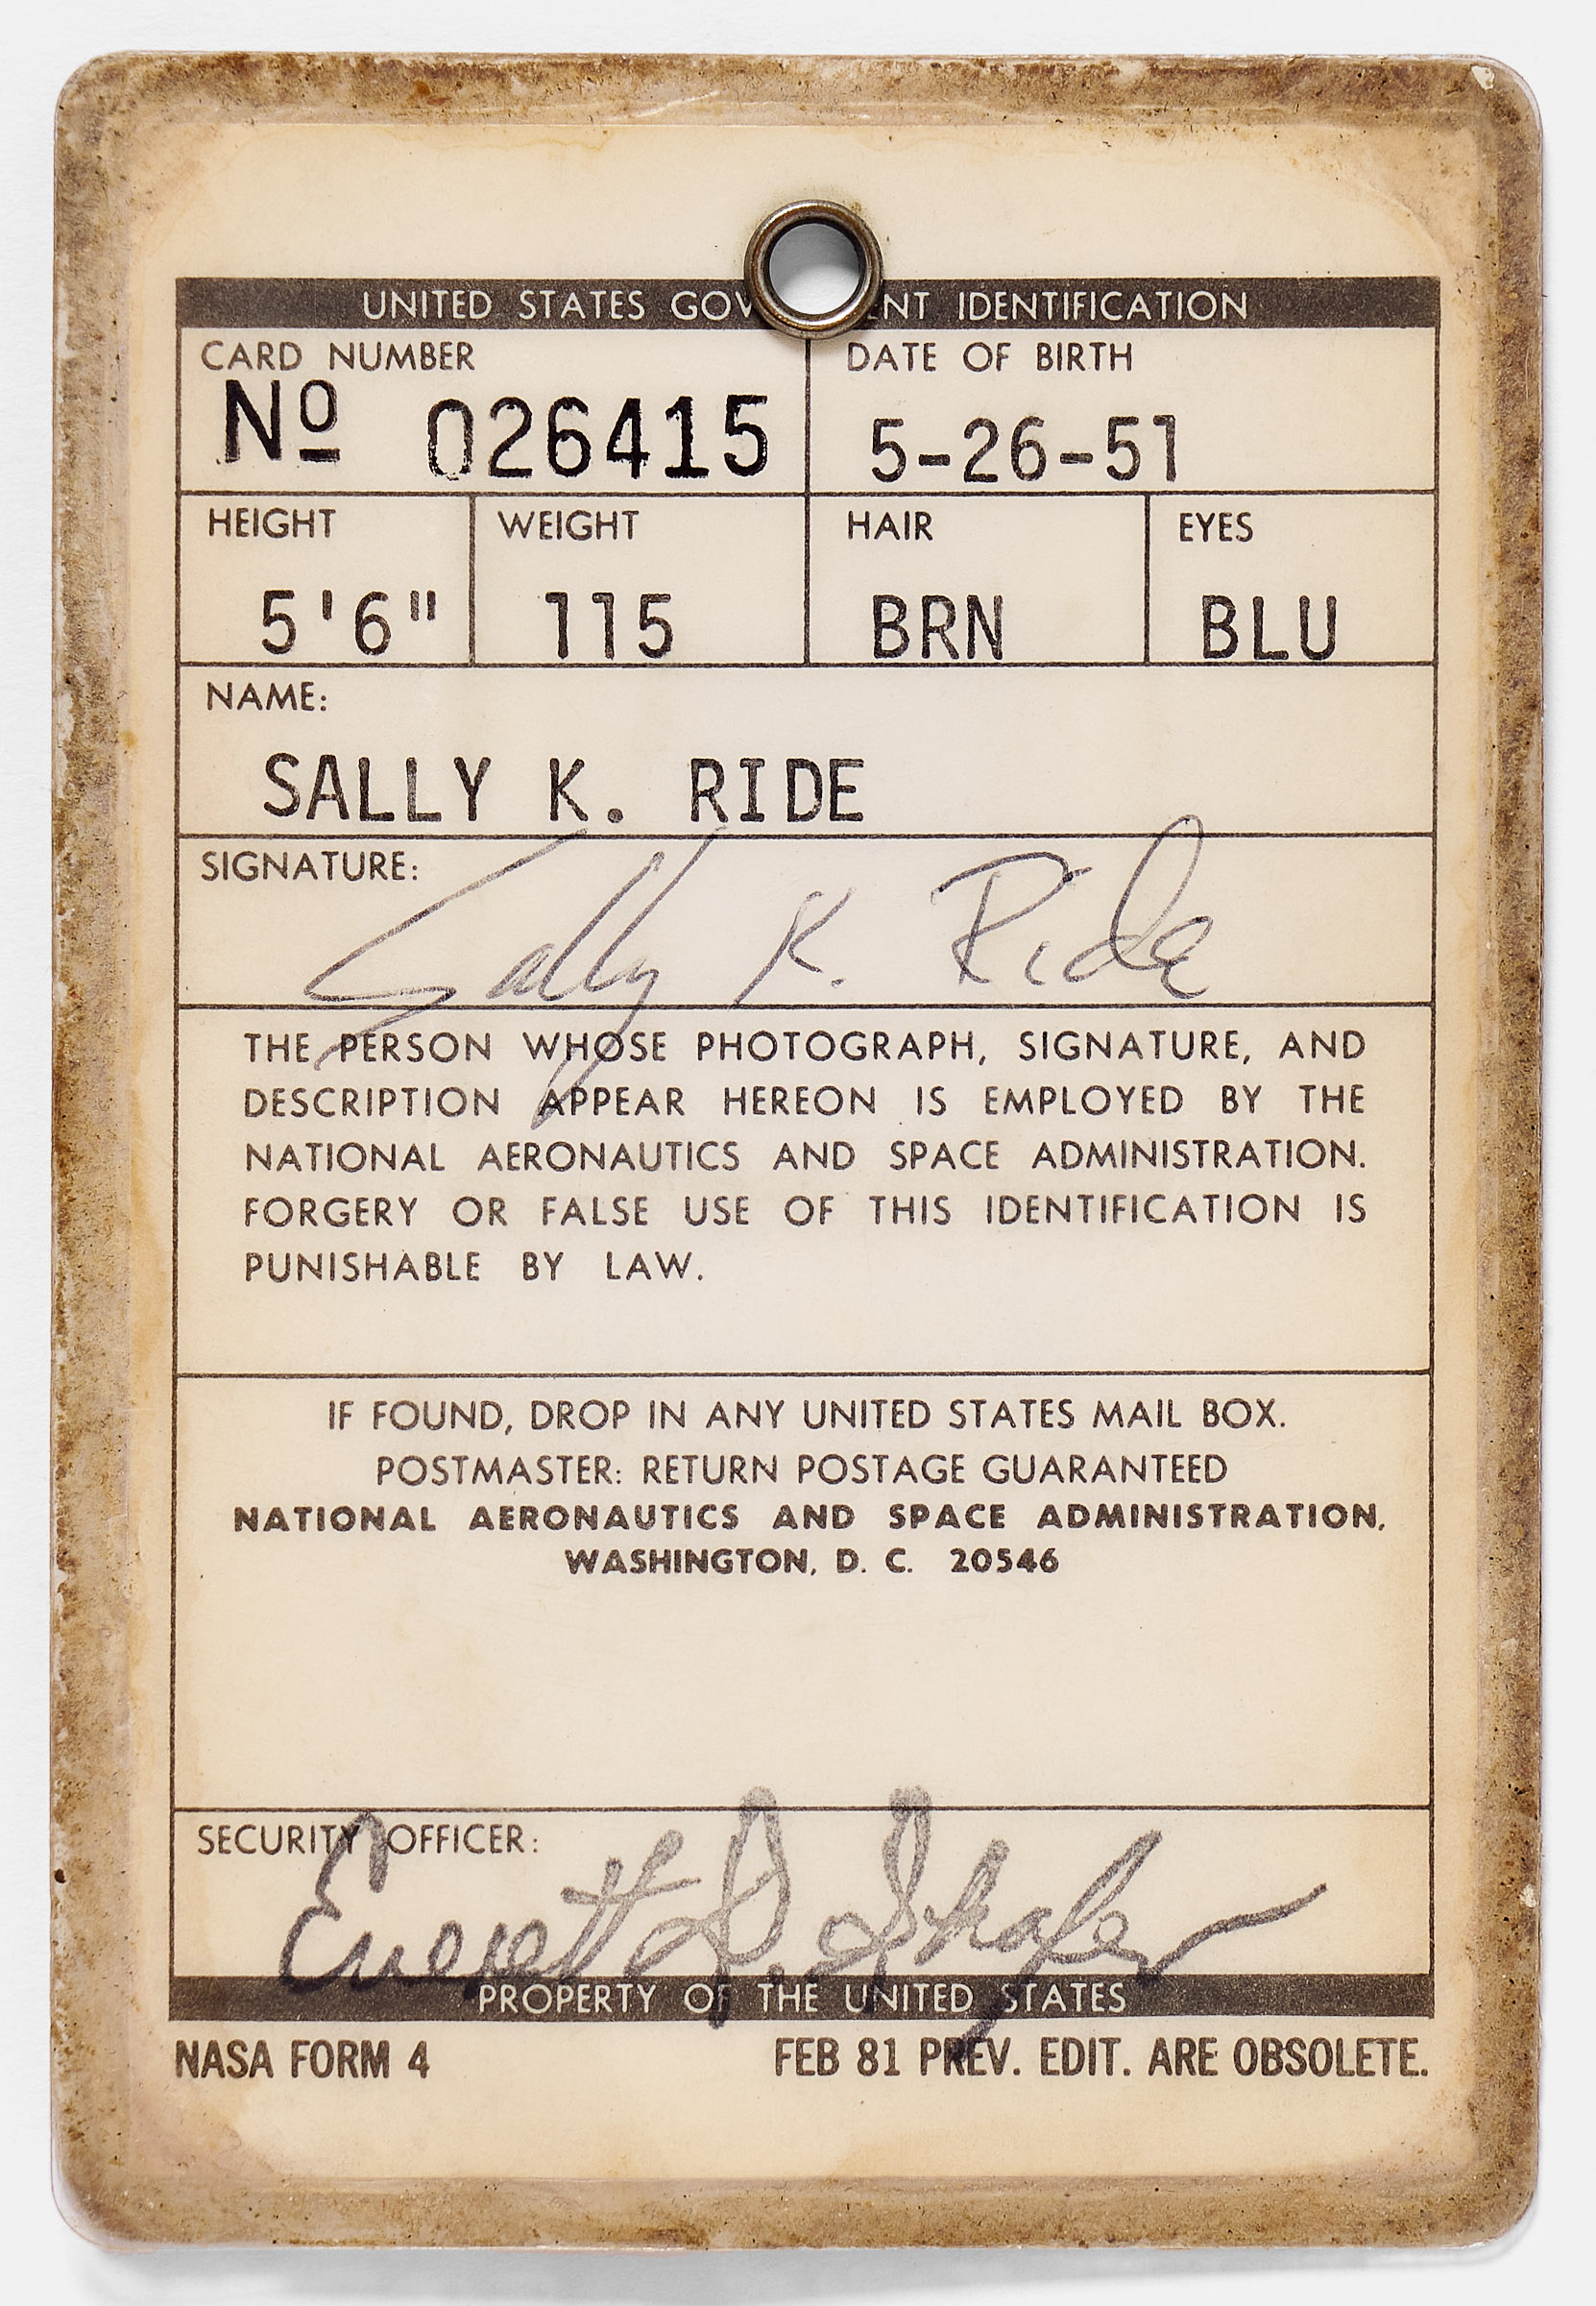 UNITED STATES GOV ENT IDENTIFICATION
CARD NUMBER
Nº 026415
DATE OF BIRTH
5-26-51
HEIGHT
5'6"
WEIGHT
115
HAIR
BRN
EYES
BLU
NAME:
SALLY K. RIDE
SIGNATURE:
Sally K. Ride
THE PERSON WHOSE PHOTOGRAPH, SIGNATURE, AND
DESCRIPTION APPEAR HEREON IS EMPLOYED BY THE
NATIONAL AERONAUTICS AND SPACE ADMINISTRATION.
FORGERY OR FALSE USE OF THIS IDENTIFICATION IS
PUNISHABLE BY LAW.
IF FOUND, DROP IN ANY UNITED STATES MAIL BOX.
POSTMASTER: RETURN POSTAGE GUARANTEED
NATIONAL AERONAUTICS AND SPACE ADMINISTRATION,
WASHINGTON, D. C. 20546
SECURITY OFFICER:
Everett D. Shafer
PROPERTY OF THE UNITED STATES
NASA FORM 4 FEB 81 PREV. EDIT. ARE OBSOLETE.